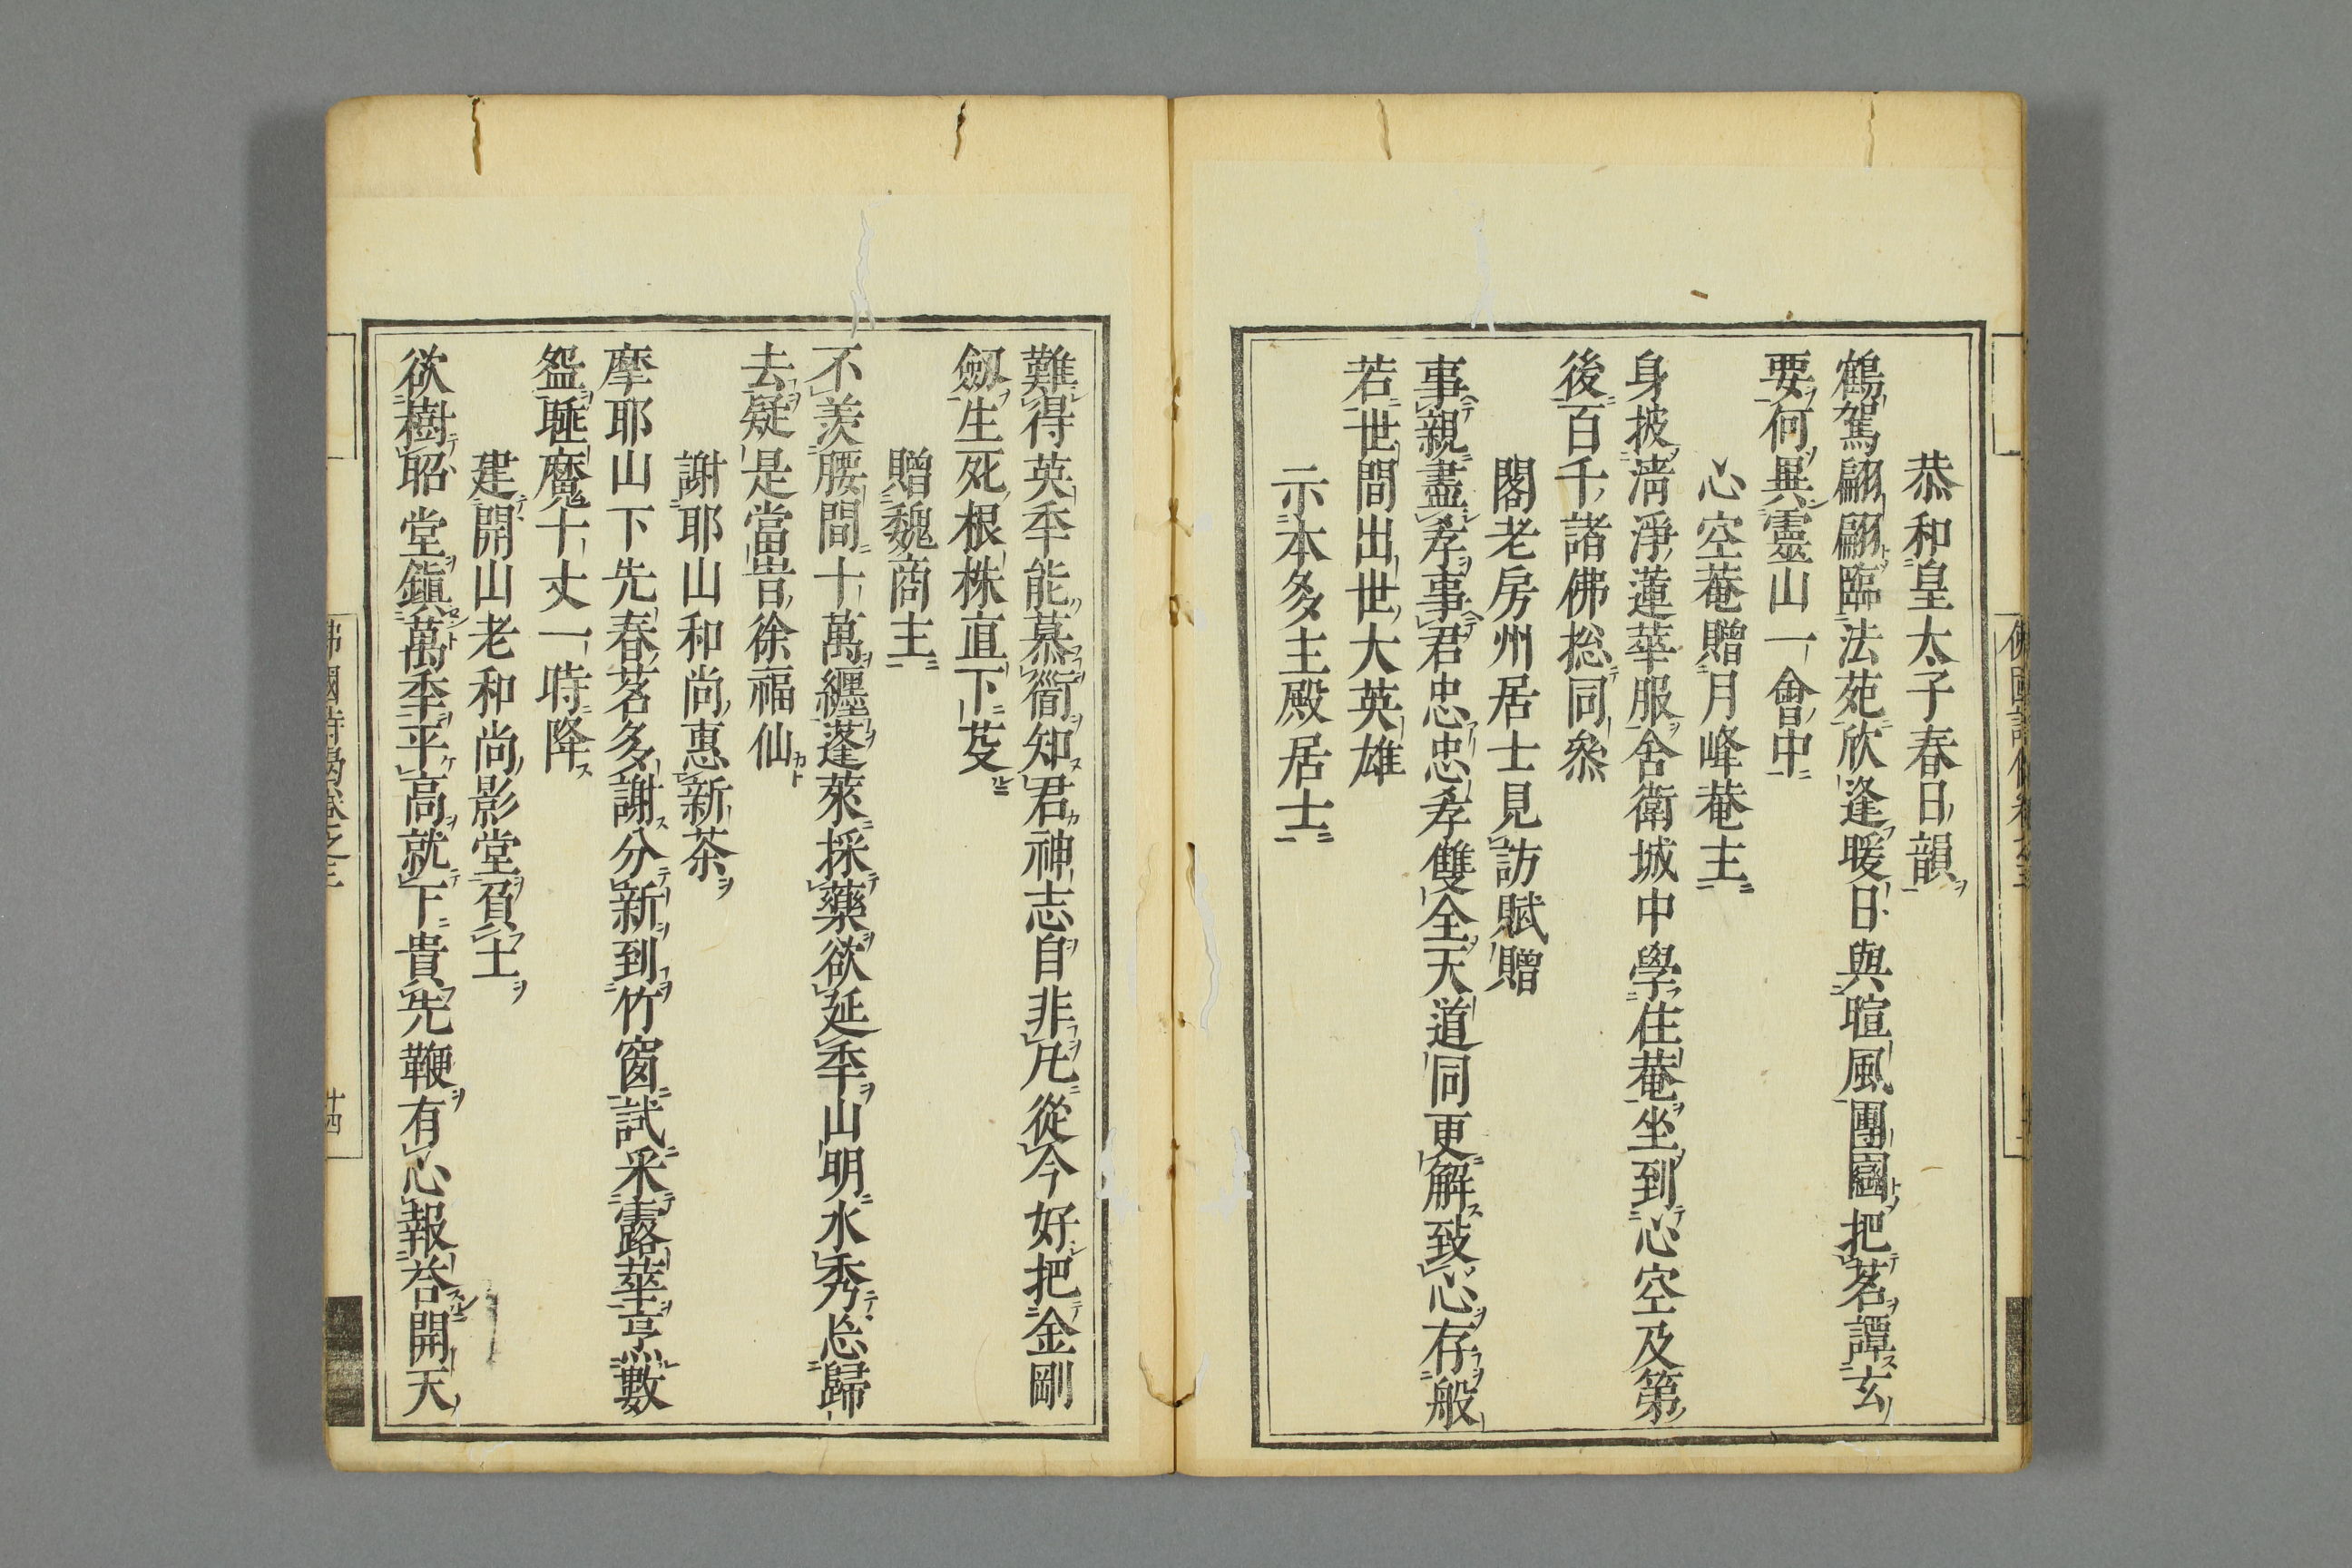 恭和皇太子春日韻
鶴駕翩翩臨法苑欣逢暖日與暄風團圝把茗譚玄
要何異靈山一會中
心空菴贈月峰菴主
身披淸淨蓮華服舍衛城中學住菴坐到心空及第
後百千諸佛捴同叅
閣老房州居士見訪賦贈
事親盡孝事君忠忠孝雙全天道同更解致心存般
若世間出世大英雄
示本多主殿居士
難得英年能慕衜知君神志自非凡從今好把金剛
劒生死根株直下芟
贈魏商主
不羨腰間十萬纏蓬萊採藥欲延年山明水秀忘歸
去疑是當昔徐福仙
謝耶山和尚惠新茶
摩耶山下先春茗多謝分新到竹窗試采露華烹數
盌睡魔十丈一時降
建開山老和尚影堂負土
欲樹昭堂鎮萬年平高就下貴先鞭有心報荅開天
佛國詩偈卷之三
廿四